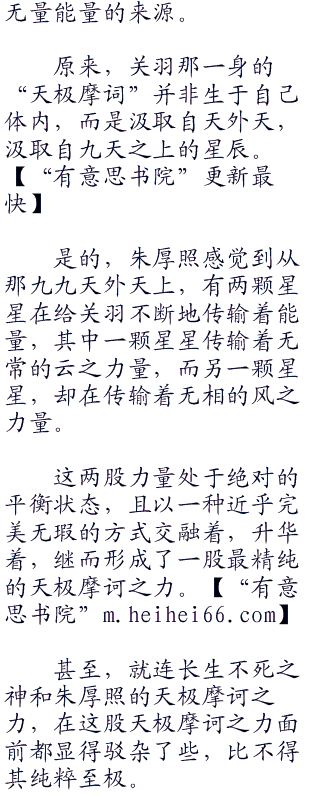 无量能量的来源。
原来，关羽那一身的
“天极摩词”并非生于自己
体内，而是汲取自天外天，
汲取自九天之上的星辰。
【“有意思书院”更新最
快】
是的，朱厚照感觉到从
那九九天外天上，有两颗星
星在给关羽不断地传输着能
量，其中一颗星星传输着无
常的云之力量，而另一颗星
星，却在传输着无相的风之
力量。
这两股力量处于绝对的
平衡状态，且以一种近乎完
美无瑕的方式交融着，升华
着，继而形成了一股最精纯
的天极摩诃之力。【“有意
思书院”m.heihei66.com】
甚至，就连长生不死之
神和朱厚照的天极摩诃之
力，在这股天极摩诃之力面
前都显得驳杂了些，比不得
其纯粹至极。